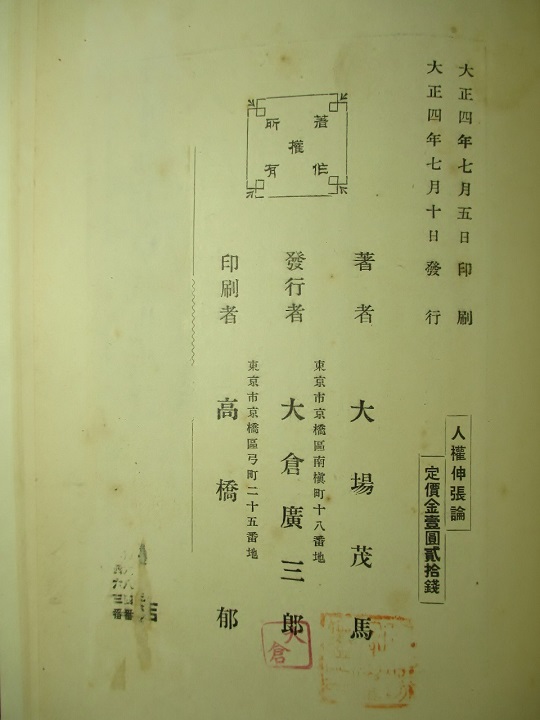 大正四年七月五日印刷
大正四年七月十日發行
人權伸張論
定價金壹圓貳拾錢
著者 大場茂馬
東京市京橋區南槇町十八番地
發行者 大倉廣三郎
東京市京橋區弓町二十五番地
印刷者 高橋郁
著作權所有
大倉